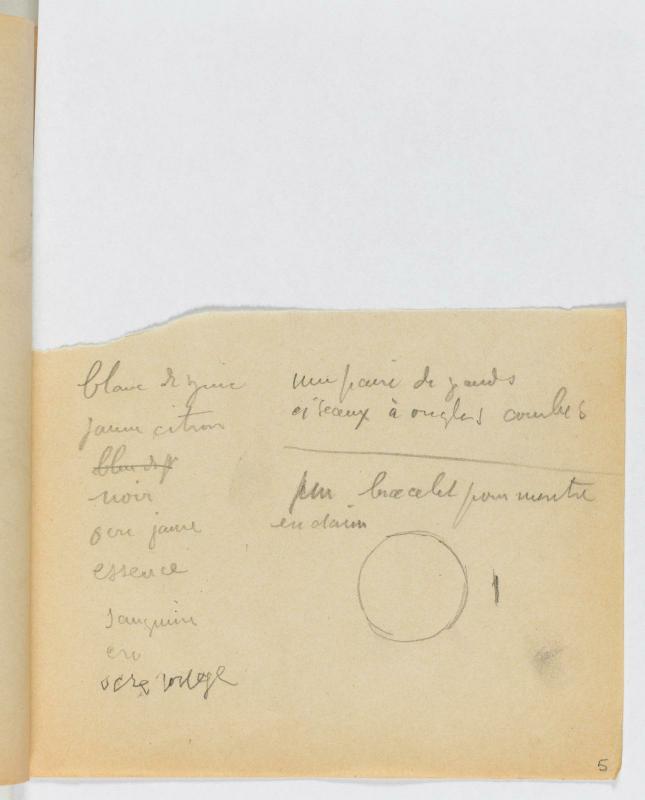 blanc de zinc
jaune citron
noir
ocre jaune
essence
sanguine
ocre rouge
une paire de grands
ciseaux à ongles courbes
un bracelet pour montre
en daim
5